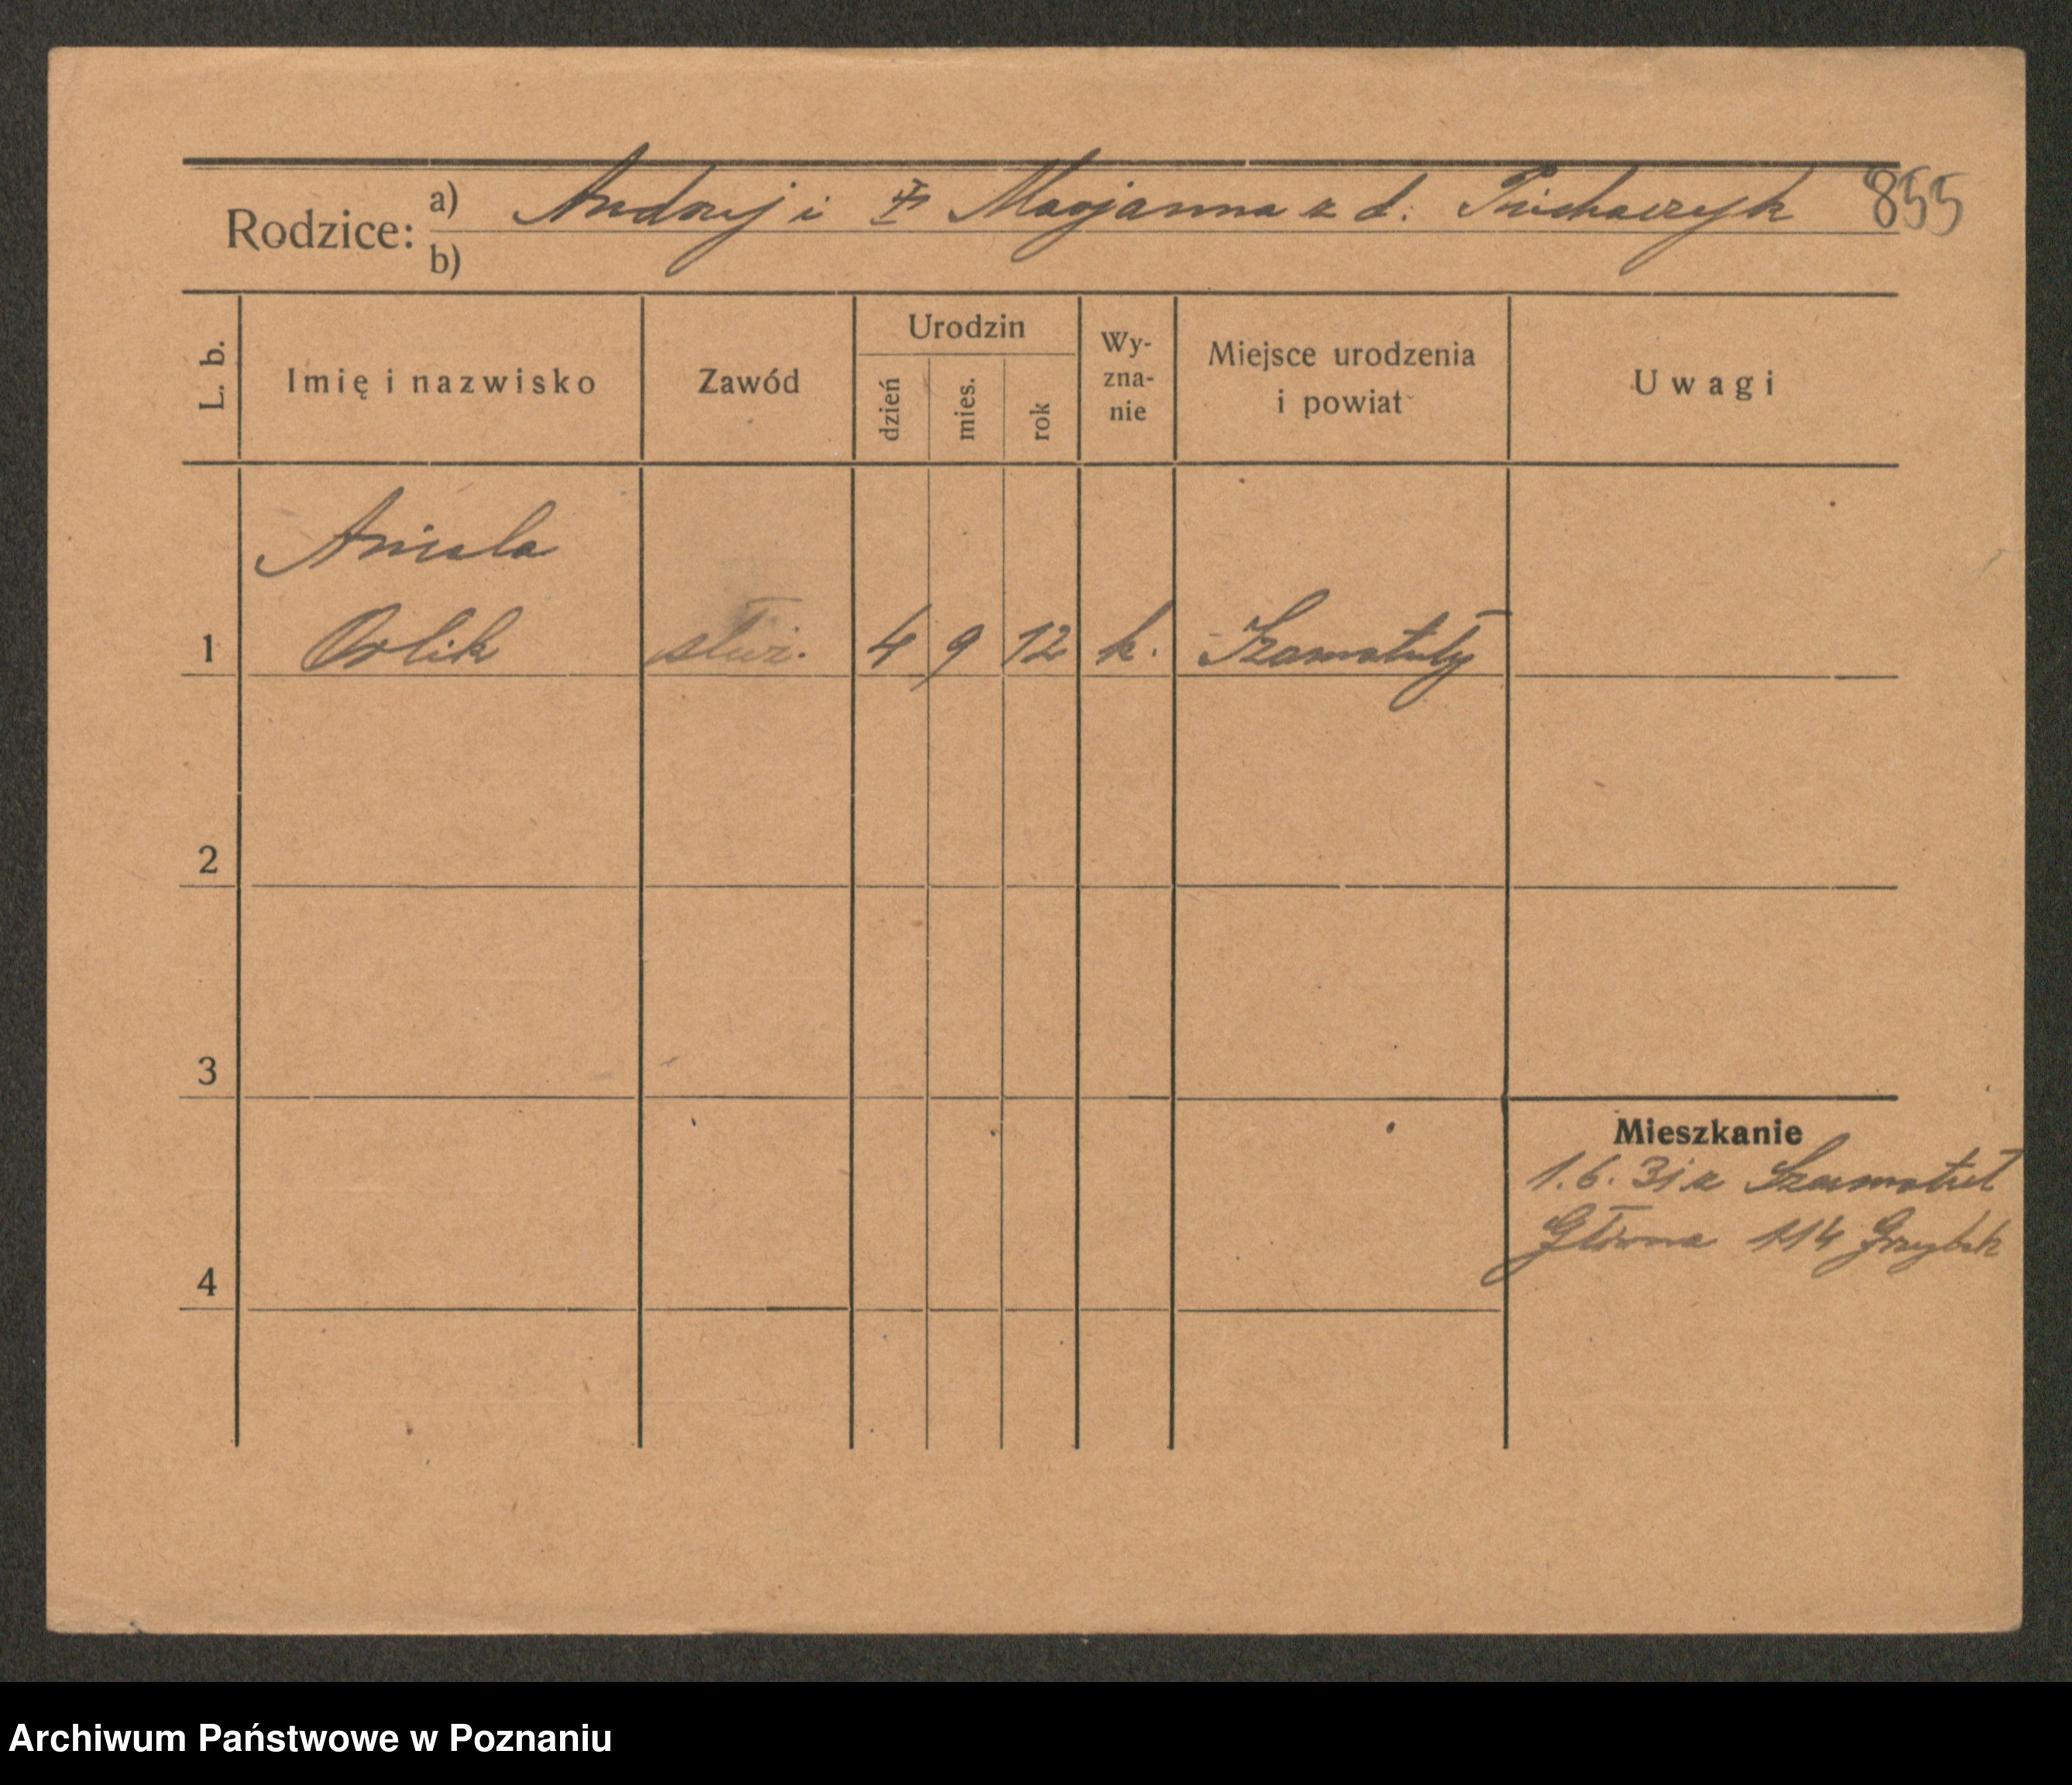 855
Rodzice: a) Andrzej i Marjanna z d.
b)
L. b.
Imię i nazwisko
Zawód
Urodzin
dzień
mies.
rok
Wy-
zna-
nie
Miejsce urodzenia
i powiat
Uwagi
Aniela
1 Orlik służ. 4 9 12 k. Szamotuły
2
3
4
Mieszkanie
1.6.31 z Szamotuł
Główna 114 Grzybek
Archiwum Państwowe w Poznaniu